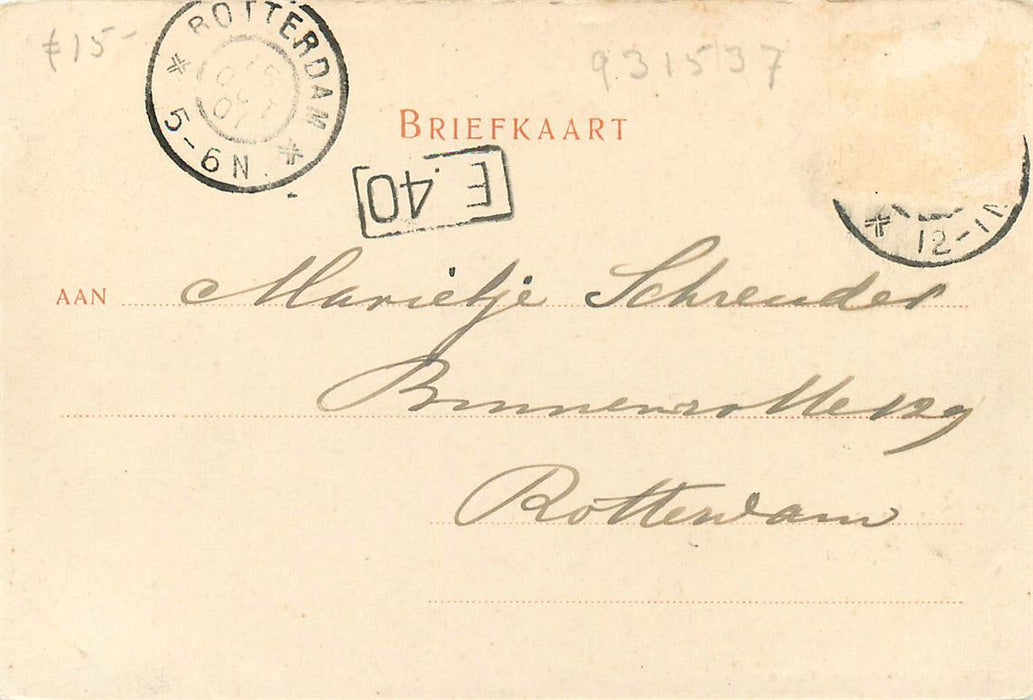 €15-
931537
ROTTERDAM
5-6N.
BRIEFKAART
E.40
12-1N
AAN Marietje Schreuder
Binnenrotte 129
Rotterdam